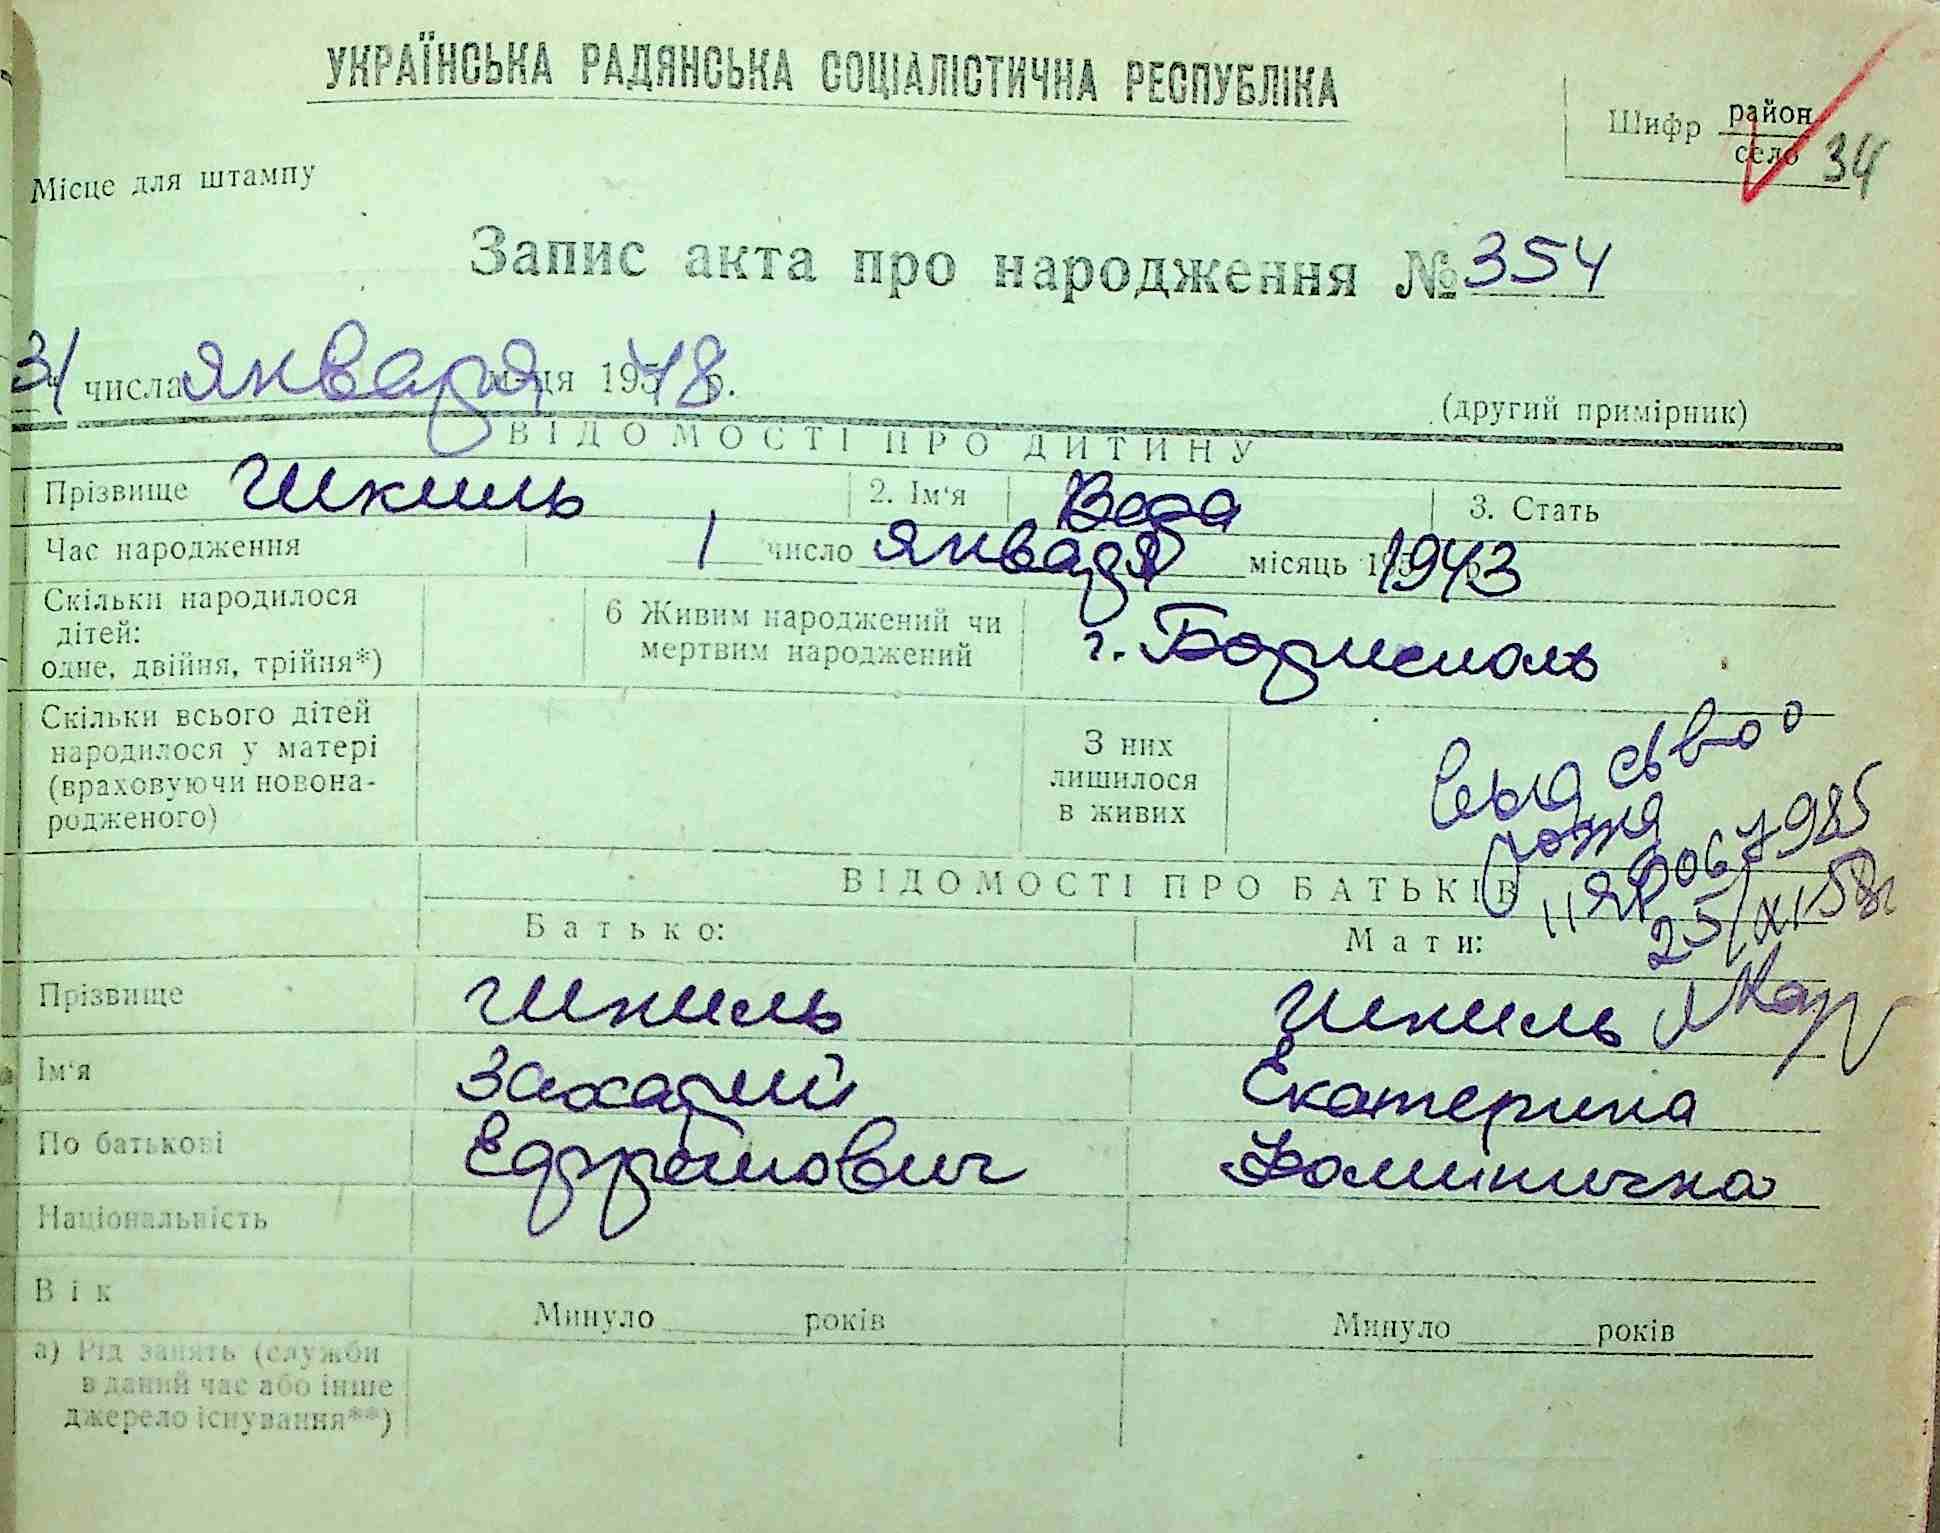 УКРАЇНСЬКА РАДЯНСЬКА СОЦІАЛІСТИЧНА РЕСПУБЛІКА
Шифр район
село 34
Місце для штампу
Запис акта про народження № 354
31 числа января м-ця 195 р.
(другий примірник)
ВІДОМОСТІ ПРО ДИТИНУ
Прізвище Шкиль 2. Ім'я Вера 3. Стать
Час народження 1 число января місяць 1943
Скільки народилося дітей: одне, двійня, трійня*) 6 Живим народжений чи мертвим народжений г. Борисполь
Скільки всього дітей народилося у матері (враховуючи новонародженого) З них лишилося в живих
выд св-во
ІІ ЯР 0067985
25/XI 58г
ВІДОМОСТІ ПРО БАТЬКІВ
Батько: Мати:
Прізвище Шкиль Шкиль
Ім'я Захарий Екатерина
По батькові Ефремович Фоминична
Національність
Вік Минуло років Минуло років
а) Рід занять (служби в даний час або інше джерело існування**)